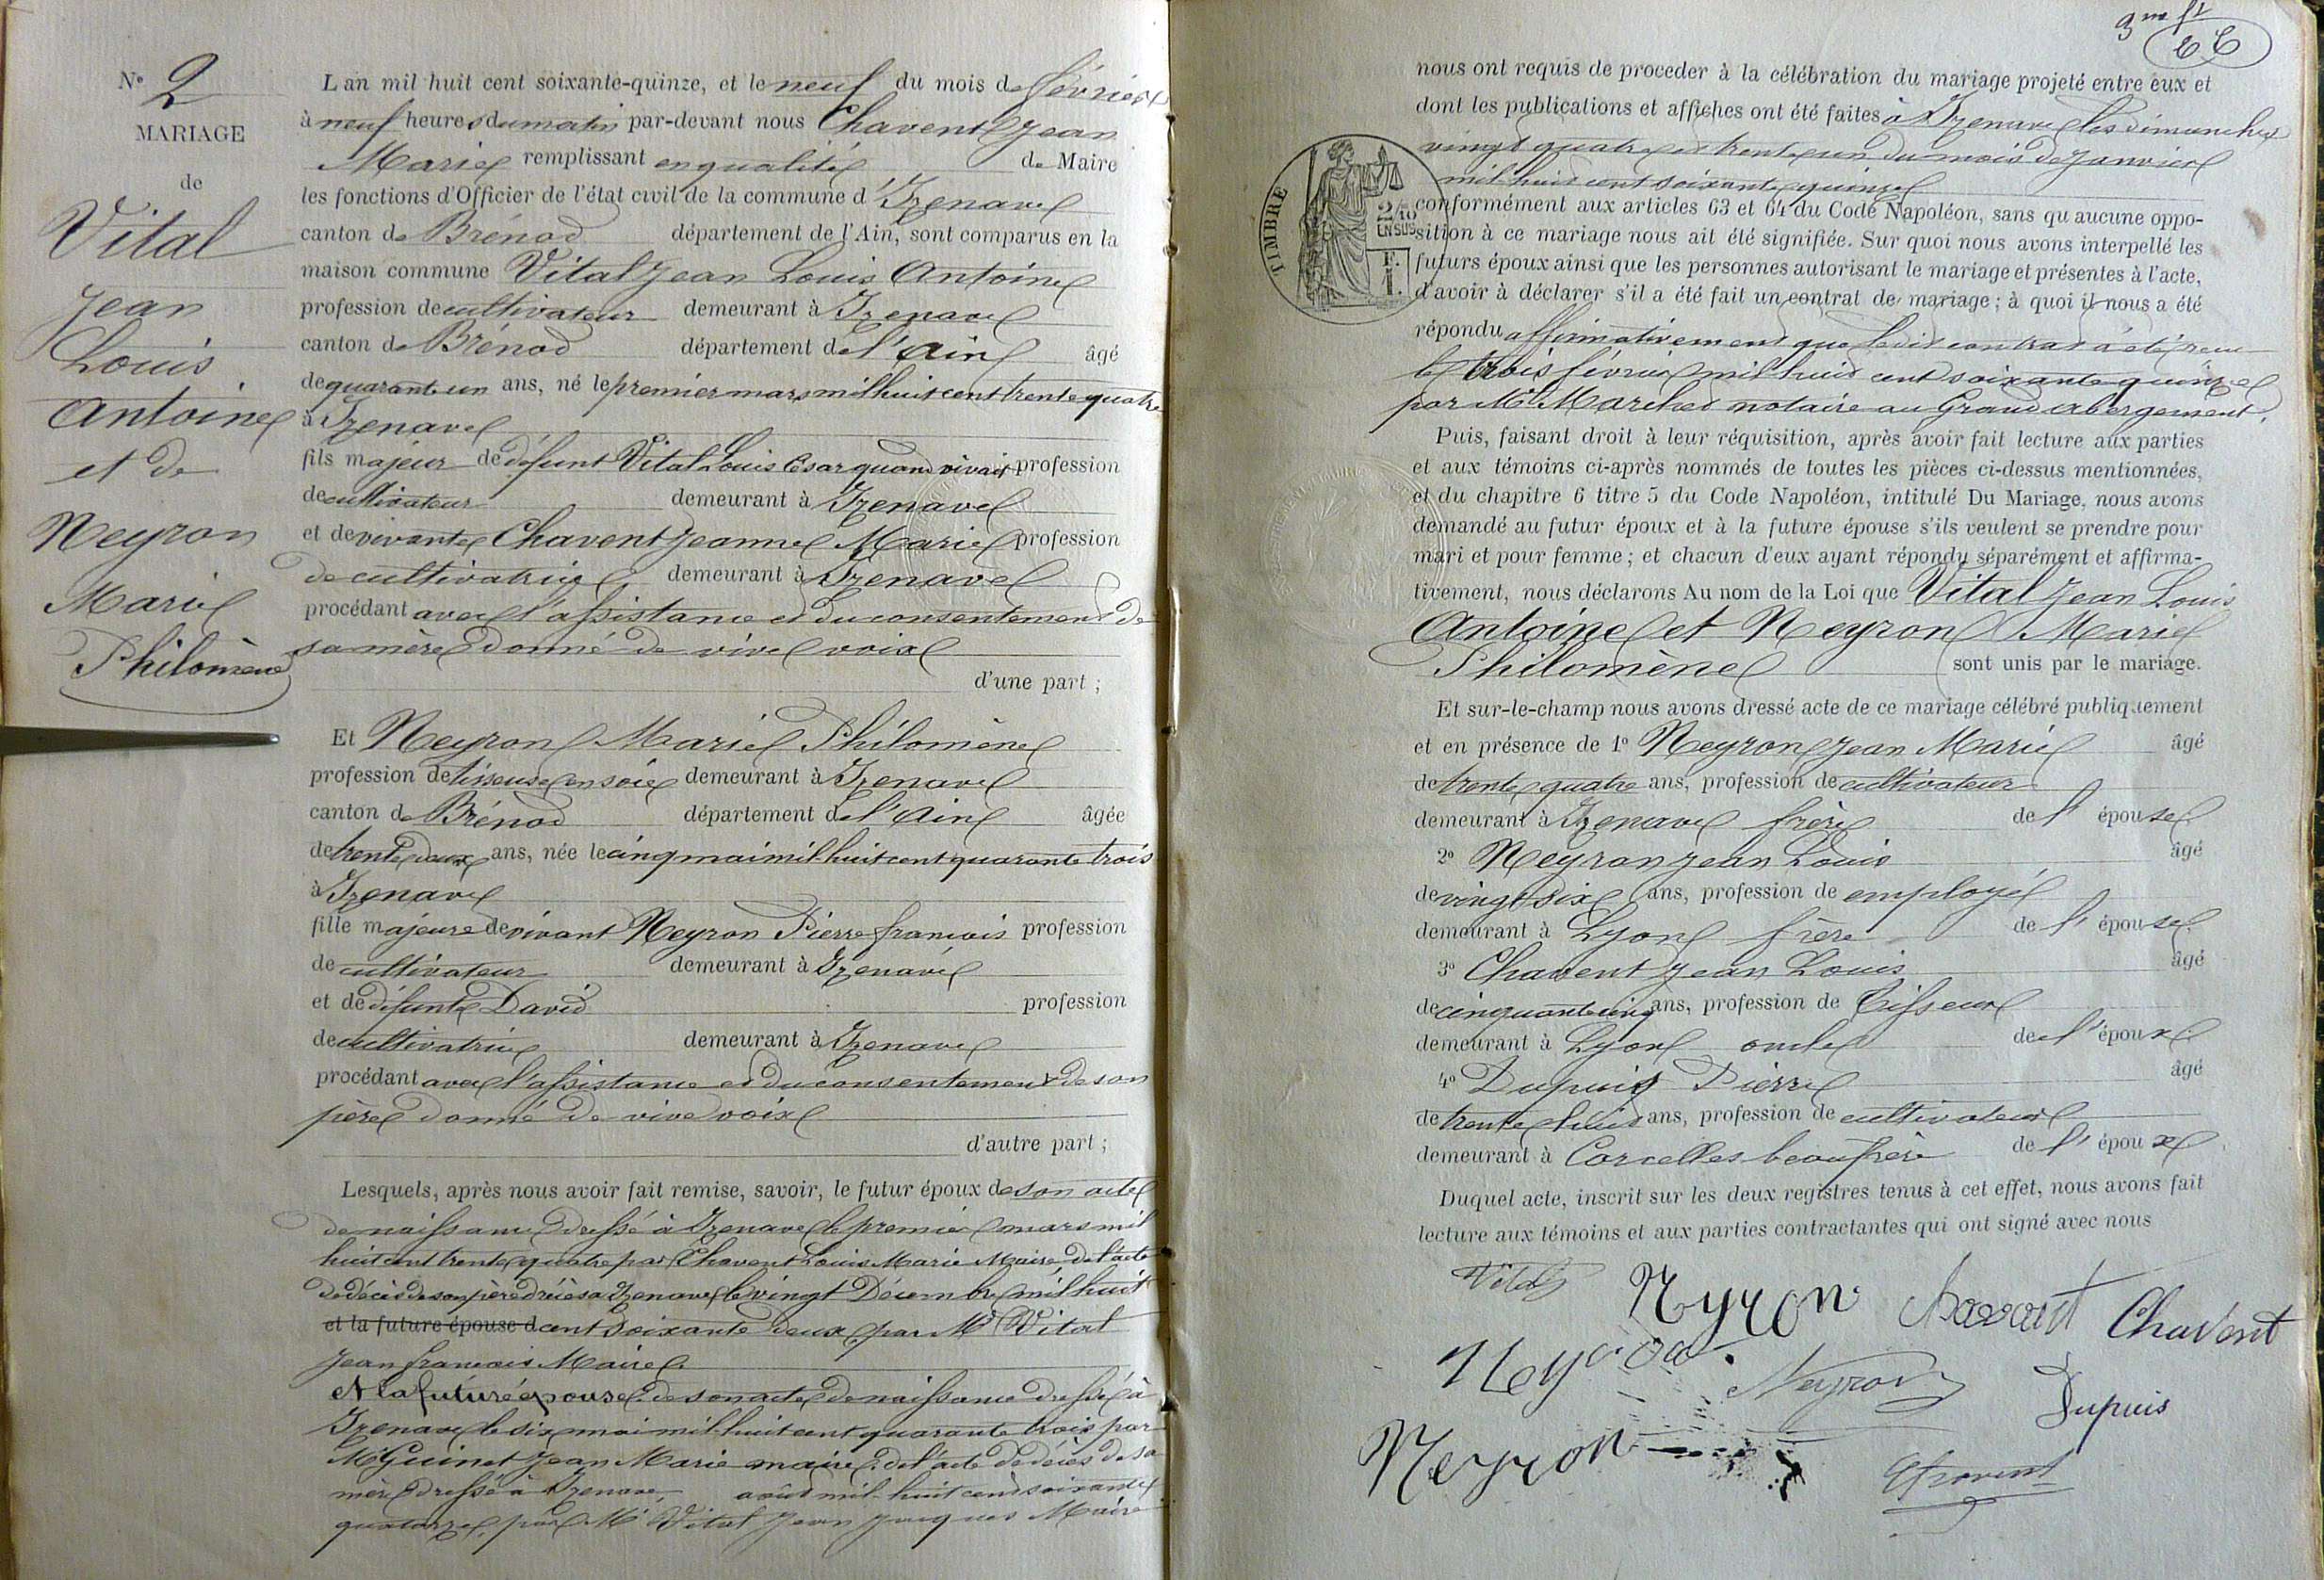 N° 2
MARIAGE
de
Vital
Jean
Louis
Antoine
et de
Neyron
Marie
Philomène
L'an mil huit cent soixante-quinze, et le neuf du mois de février
à neuf heures du matin par-devant nous Chavent Jean
Marie remplissant en qualité de Maire
les fonctions d'Officier de l'état civil de la commune d'Izenave
canton de Brénod département de l'Ain, sont comparus en la
maison commune Vital Jean Louis Antoine
profession de cultivateur demeurant à Izenave
canton de Brénod département de l'Ain âgé
de quarante un ans, né le premier mars mil huit cent trente quatre
à Izenave
fils majeur de défunt Vital Louis César quand vivait profession
de cultivateur demeurant à Izenave
et de vivante Chavent Jeanne Marie profession
de cultivatrice demeurant à Izenave
procédant avec l'assistance et du consentement de
sa mère donné de vive voix
d'une part ;
Et Neyron Marie Philomène
profession de tisseuse en soie demeurant à Izenave
canton de Brénod département de l'Ain âgée
de trente deux ans, née le cinq mai mil huit cent quarante trois
à Izenave
fille majeure de vivant Neyron Pierre françois profession
de cultivateur demeurant à Izenave
et de défunte David profession
de cultivatrice demeurant à Izenave
procédant avec l'assistance et du consentement de son
père donné de vive voix
d'autre part ;
Lesquels, après nous avoir fait remise, savoir, le futur époux de son acte
de naissance dressé à Izenave le premier mars mil
huit cent trente quatre par Chavent Louis Marie Maire, de l'acte
de décès de son père à Izenave le vingt Décembre mil huit
et la future épouse d cent soixante deux par Mr Vital
Jean françois Maire
et la future épouse de son acte de naissance dressé à
Izenave le six mai mil huit cent quarante trois par
Mr Guinet Jean Marie maire, de l'acte de décès de sa
mère dressé à Izenave août mil huit cent soixante
quatorze, par Mr Vital Jean Jacques Maire
3me ft
nous ont requis de proceder à la célébration du mariage projeté entre eux et
dont les publications et affiches ont été faites à Izenave les dimanches
vingt quatre et trente un du mois de Janvier
mil huit cent soixante quinze
TIMBRE
2/10
EN SUS
F.
1.
conformément aux articles 63 et 64 du Code Napoléon, sans qu'aucune oppo-
sition à ce mariage nous ait été signifiée. Sur quoi nous avons interpellé les
futurs époux ainsi que les personnes autorisant le mariage et présentes à l'acte,
d'avoir à déclarer s'il a été fait un contrat de mariage ; à quoi il nous a été
répondu affirmativement que ledit contrat a été reçu
le trois février mil huit cent soixante quinze
par Me Marchet notaire au Grand abergement.
Puis, faisant droit à leur réquisition, après avoir fait lecture aux parties
et aux témoins ci-après nommés de toutes les pièces ci-dessus mentionnées,
et du chapitre 6 titre 5 du Code Napoléon, intitulé Du Mariage, nous avons
demandé au futur époux et à la future épouse s'ils veulent se prendre pour
mari et pour femme ; et chacun d'eux ayant répondu séparément et affirma-
tivement, nous déclarons Au nom de la Loi que Vital Jean Louis
Antoine et Neyron Marie
Philomène sont unis par le mariage.
Et sur-le-champ nous avons dressé acte de ce mariage célébré publiquement
et en présence de 1° Neyron Jean Marie âgé
de trente quatre ans, profession de cultivateur
demeurant à Izenave frère de l'épouse
2° Neyron Jean Louis âgé
de vingt six ans, profession de employé
demeurant à Lyon frère de l'épouse
3° Chavent Jean Louis âgé
de cinquante cinq ans, profession de Tisseur
demeurant à Lyon oncle de l'époux
4° Dupuis Pierre âgé
de trente huit ans, profession de cultivateur
demeurant à Corcelles beaufrère de l'époux
Duquel acte, inscrit sur les deux registres tenus à cet effet, nous avons fait
lecture aux témoins et aux parties contractantes qui ont signé avec nous
Vital Neyron Chavent Chavent
Neyron Neyron Dupuis
Neyron Chavent